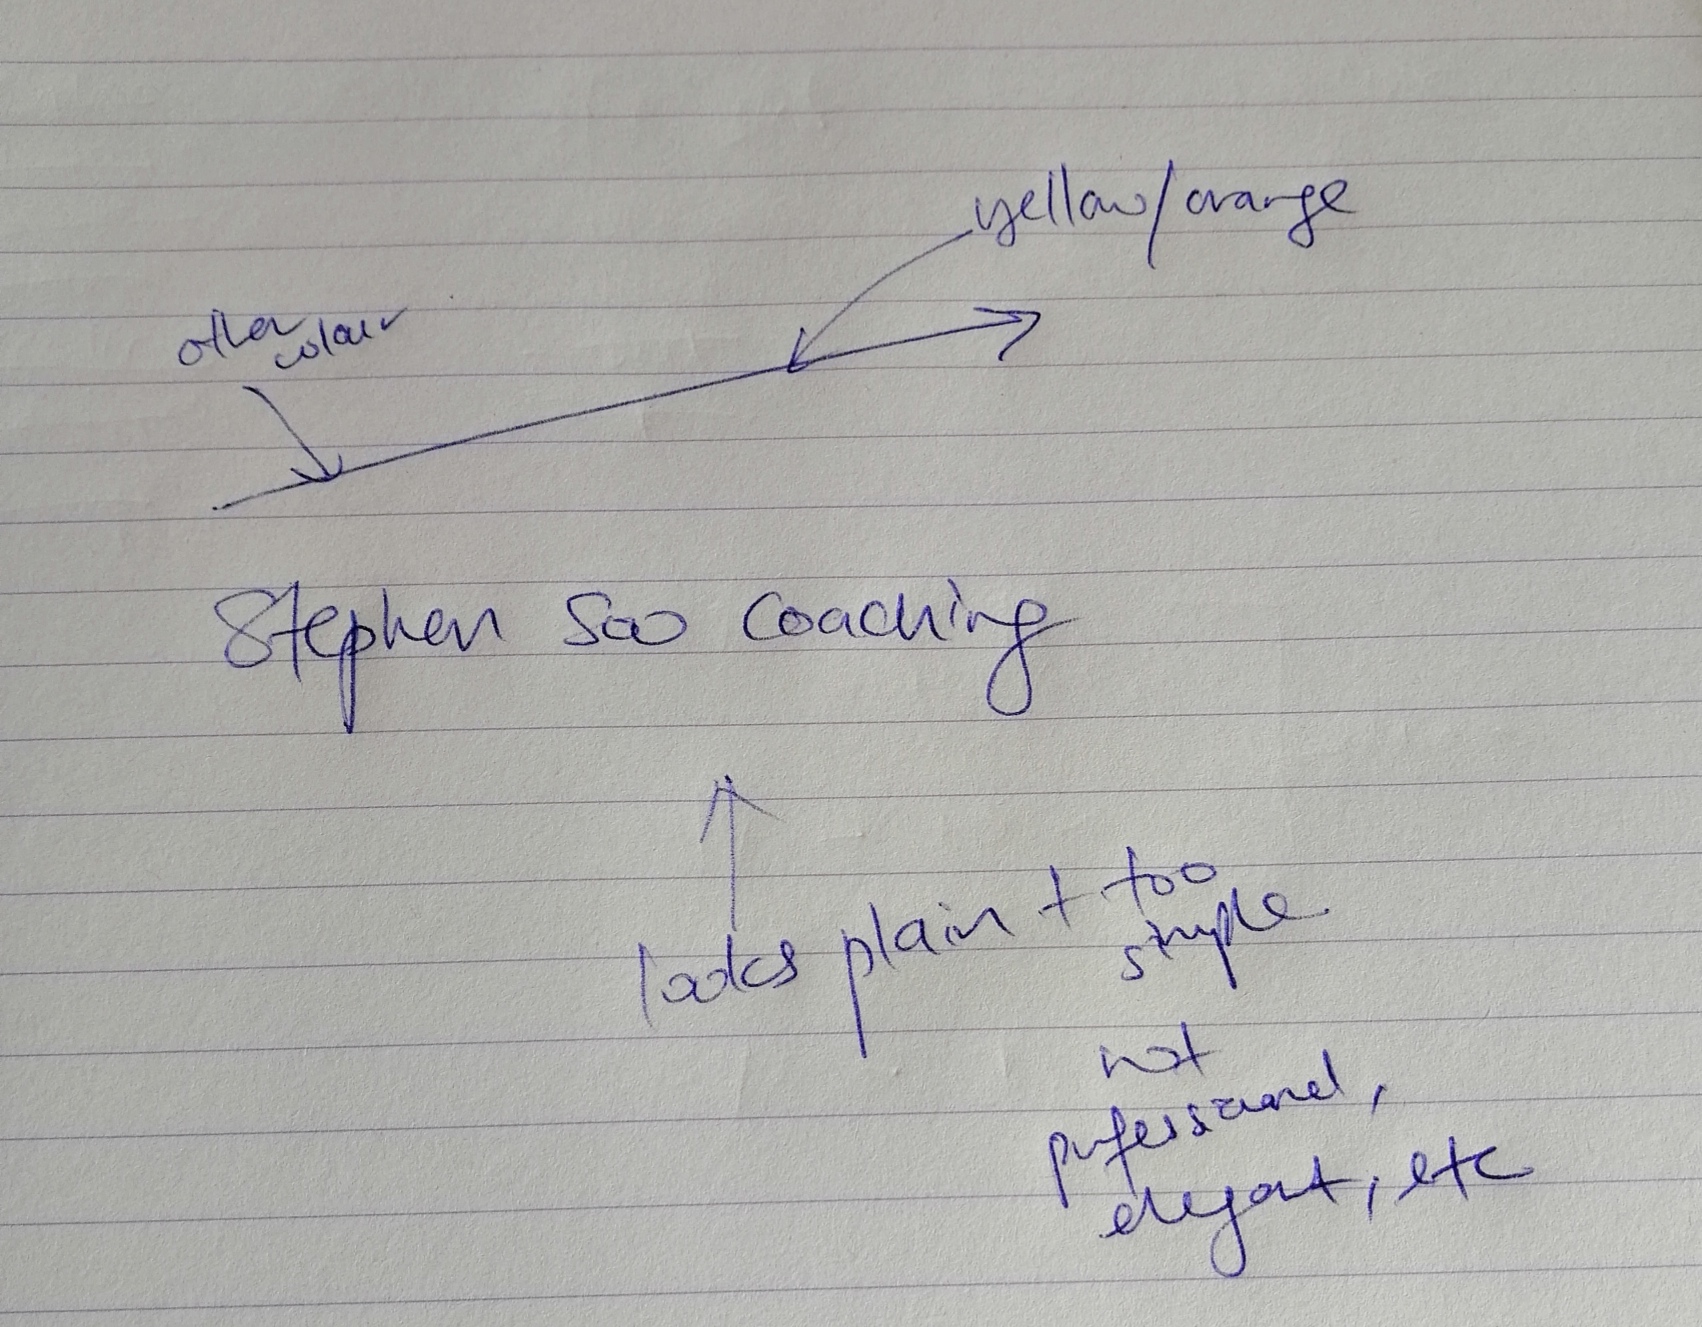 yellow/orange
other
colour
Stephen Soo Coaching
looks plain + too
simple
not
professional,
elegant, etc